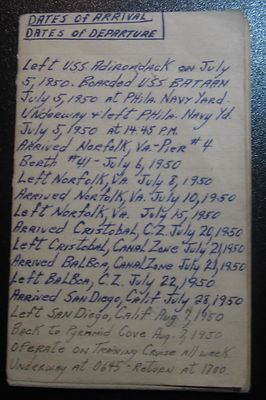 DATES OF ARRIVAL
DATES OF DEPARTURE
Left USS. Adirondack on July
5, 1950. Boarded USS. BATAAN
July 5, 1950 at Phila. Navy Yard.
Underway & left Phila. Navy Yd.
July 5, 1950 at 14.45 P.M.
Arrived Norfolk, Va.-Pier #4
Berth #41 - July 6, 1950
Left Norfolk, Va. July 8, 1950
Arrived Norfolk, Va. July 10, 1950
Left Norfolk, Va. July 15, 1950
Arrived Cristobal, C.Z. July 20, 1950
Left Cristobal, Canal Zone July 21, 1950
Arrived Balboa, Canal Zone July 21, 1950
Left Balboa, C.Z. July 22, 1950
Arrived San Diego, Calif July 28, 1950
Left San Diego, Calif Aug. 7, 1950
Back to Pyramid Cove Aug. 7, 1950
Operate on Training Cruise all week.
Underway at 0645 - Return at 1700.